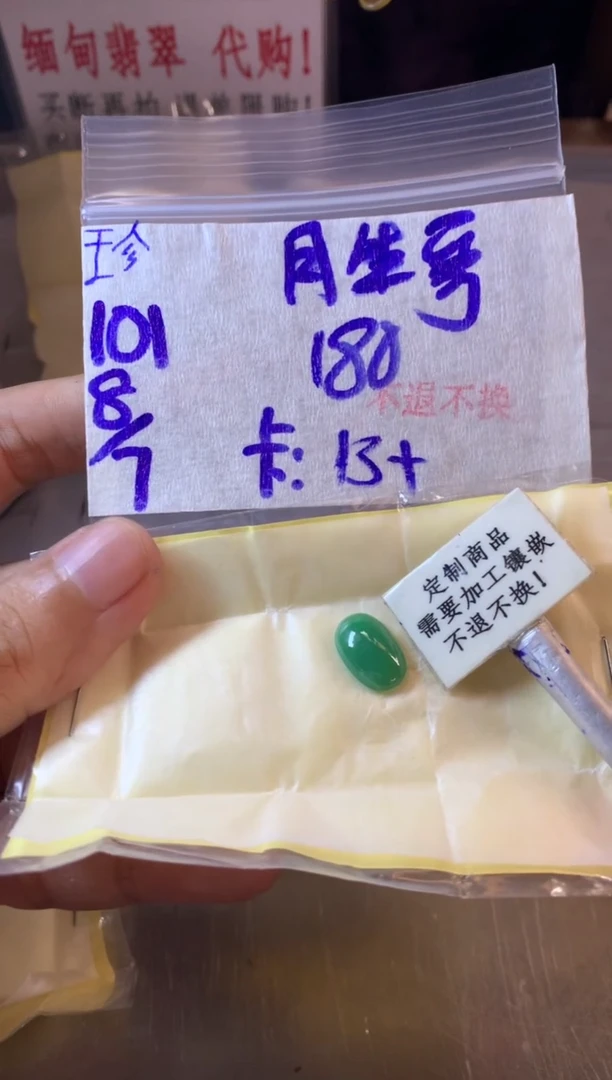 缅甸翡翠 代购!
珍
101
8/7
月生哥
180
不退不换
卡: 13+
定制商品
需要加工镶嵌
不退不换!